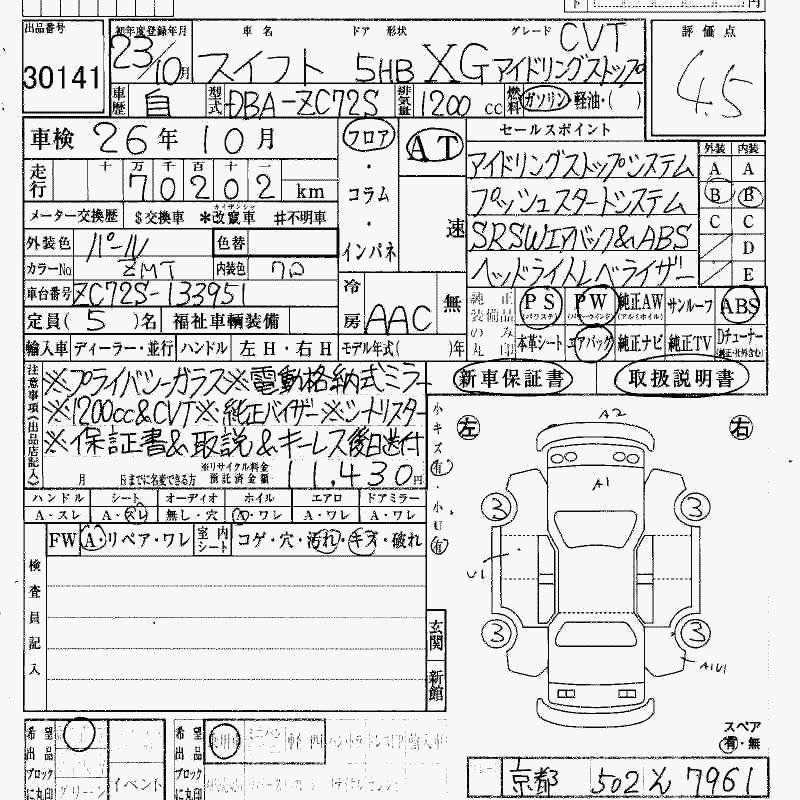 出品番号 初年度登録年月 車名 ドア 形状 グレード 評価点
30141 23/10月 スイフト 5HB XG CVT アイドリングストップ 4.5
車歴 自 型式 DBA-ZC72S 排気量 1200 cc 燃料 ガソリン・軽油・( )
車検 26年10月 フロア AT セールスポイント 外装 内装
走行 十 万 千 百 十 一 アイドリングストップシステム A A
70202 km ・ コラム プッシュスタートシステム B B
メーター交換歴 $交換車 *改竄車 #不明車 ・ 速 SRSWエアバック&ABS C C
外装色 パール 色替 インパネ D
カラーNo. ZMT 内装色 70 ヘッドライトレベライザー E
車台番号 ZC72S-133951 冷房 AAC 無 純正装備品のみ丸印 PS (パワステ) PW (パワーウインド) 純正AW (アルミホイル) サンルーフ ABS
定員( 5 )名 福祉車輌装備 本革シート エアバッグ 純正ナビ 純正TV Dチューナー (純正・社外含む)
輸入車 ディーラー・並行 ハンドル 左H・右H モデル年式( )年 新車保証書 取扱説明書
注意事項(出品店記入)
※プライバシーガラス※電動格納式ミラー
※1200cc&CVT※純正バイザー※シートリフター
※保証書&取説&キーレス後日送付
月 日までに名変できる方 ※リサイクル料金 預託済金額 11,430円
小キズ(有)・小U(有)
ハンドル シート オーディオ ホイル エアロ ドアミラー
A・スレ A・スレ 無し・穴 A・ワレ A・ワレ A・ワレ
FW A・リペア・ワレ 室内シート コゲ・穴・汚れ・キズ・破れ
検査員記入
玄関 新館
左 右
A2
A1
3 3
U1
3 3
A1U1
スペア
有・無
希望出品ブロックに丸印 グリーン イベント
希望出品ブロックに丸印 ミニバン 輸入車
京都 502 7961